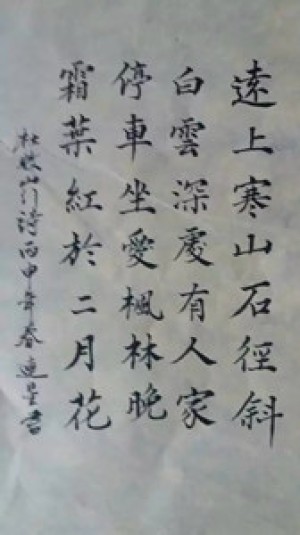 遠上寒山石徑斜
白雲深處有人家
停車坐愛楓林晚
霜葉紅於二月花
杜牧山行詩丙申年春連星書